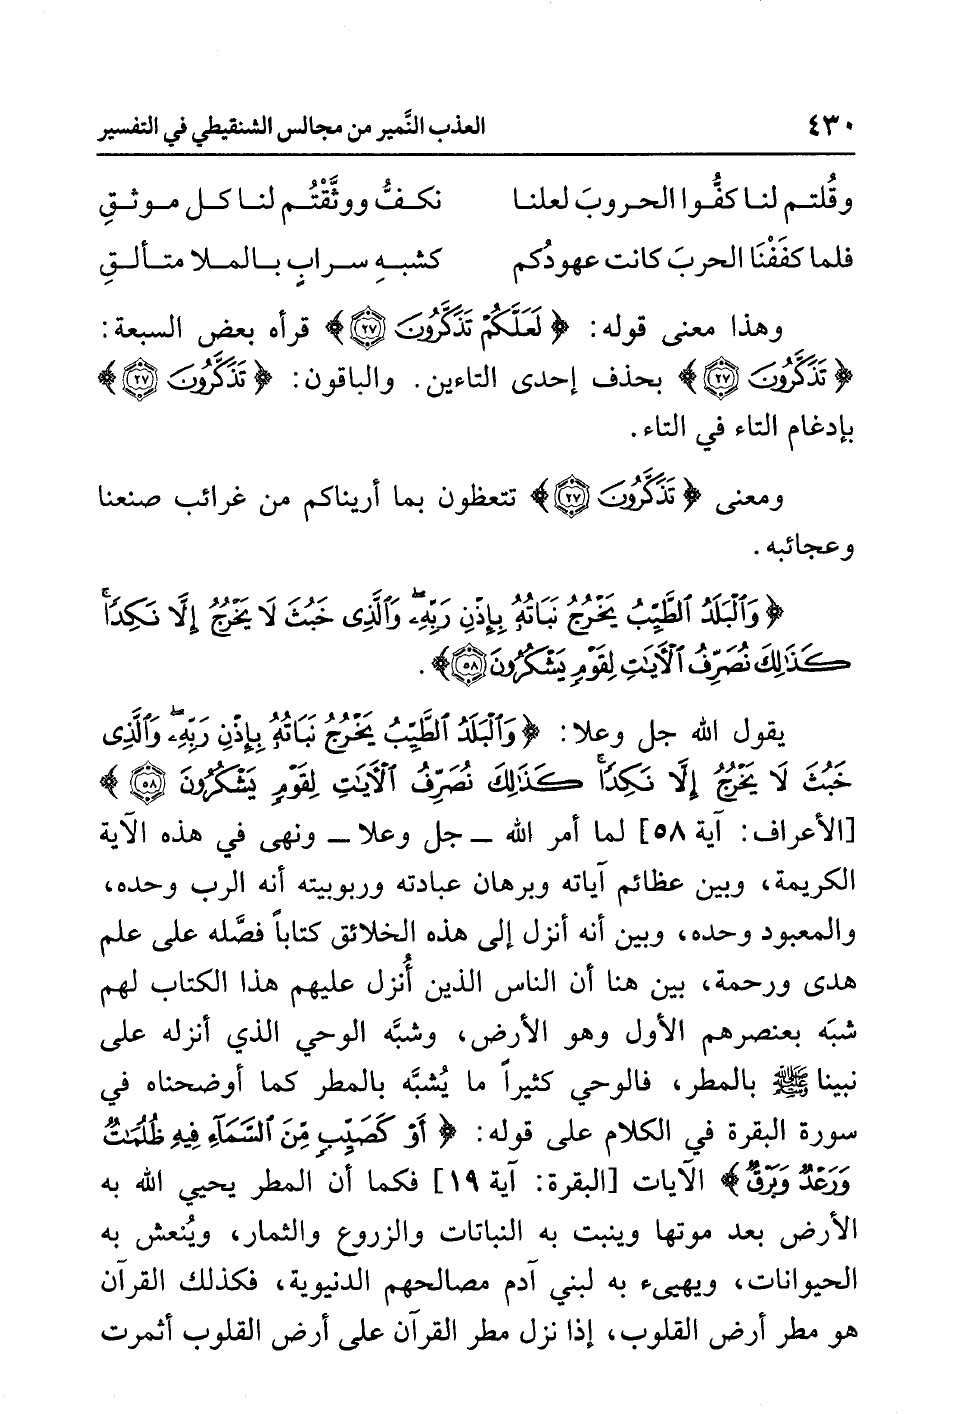 ٤٣٠ العذب النَّمير من مجالس الشنقيطي في التفسير
وقُلتـم لنـا كفُّـوا الحـروبَ لعلنـا نكـفُّ ووثَّقْتُـم لنـا كـل مـوثـقِ
فلما كفَفْنَا الحربَ كانت عهودُكم كشبـهِ سـرابٍ بـالمـلا متـألـقِ
وهذا معنى قوله: ﴿ لَعَلَّكُمْ تَذَكَّرُونَ ٢٧ ﴾ قرأه بعض السبعة:
﴿ تَذَكَّرُونَ ٢٧ ﴾ بحذف إحدى التاءين. والباقون: ﴿ تَذَكَّرُونَ ٢٧ ﴾
بإدغام التاء في التاء.
ومعنى ﴿ تَذَكَّرُونَ ٢٧ ﴾ تتعظون بما أريناكم من غرائب صنعنا
وعجائبه.
﴿ وَٱلْبَلَدُ ٱلطَّيِّبُ يَخْرُجُ نَبَاتُهُۥ بِإِذْنِ رَبِّهِۦۖ وَٱلَّذِى خَبُثَ لَا يَخْرُجُ إِلَّا نَكِدًاۚ
كَذَٰلِكَ نُصَرِّفُ ٱلْآيَٰتِ لِقَوْمٍ يَشْكُرُونَ ٥٨ ﴾.
يقول الله جل وعلا: ﴿ وَٱلْبَلَدُ ٱلطَّيِّبُ يَخْرُجُ نَبَاتُهُۥ بِإِذْنِ رَبِّهِۦۖ وَٱلَّذِى
خَبُثَ لَا يَخْرُجُ إِلَّا نَكِدًاۚ كَذَٰلِكَ نُصَرِّفُ ٱلْآيَٰتِ لِقَوْمٍ يَشْكُرُونَ ٥٨ ﴾
[الأعراف: آية ٥٨] لما أمر الله ــ جل وعلا ــ ونهى في هذه الآية
الكريمة، وبين عظائم آياته وبرهان عبادته وربوبيته أنه الرب وحده،
والمعبود وحده، وبين أنه أنزل إلى هذه الخلائق كتاباً فصَّله على علم
هدى ورحمة، بين هنا أن الناس الذين أُنزل عليهم هذا الكتاب لهم
شبَه بعنصرهم الأول وهو الأرض، وشبَّه الوحي الذي أنزله على
نبينا ﷺ بالمطر، فالوحي كثيراً ما يُشبَّه بالمطر كما أوضحناه في
سورة البقرة في الكلام على قوله: ﴿ أَوْ كَصَيِّبٍ مِّنَ ٱلسَّمَآءِ فِيهِ ظُلُمَٰتٌ
وَرَعْدٌ وَبَرْقٌ ﴾ الآيات [البقرة: آية ١٩] فكما أن المطر يحيي الله به
الأرض بعد موتها وينبت به النباتات والزروع والثمار، ويُنعش به
الحيوانات، ويهيىء به لبني آدم مصالحهم الدنيوية، فكذلك القرآن
هو مطر أرض القلوب، إذا نزل مطر القرآن على أرض القلوب أثمرت